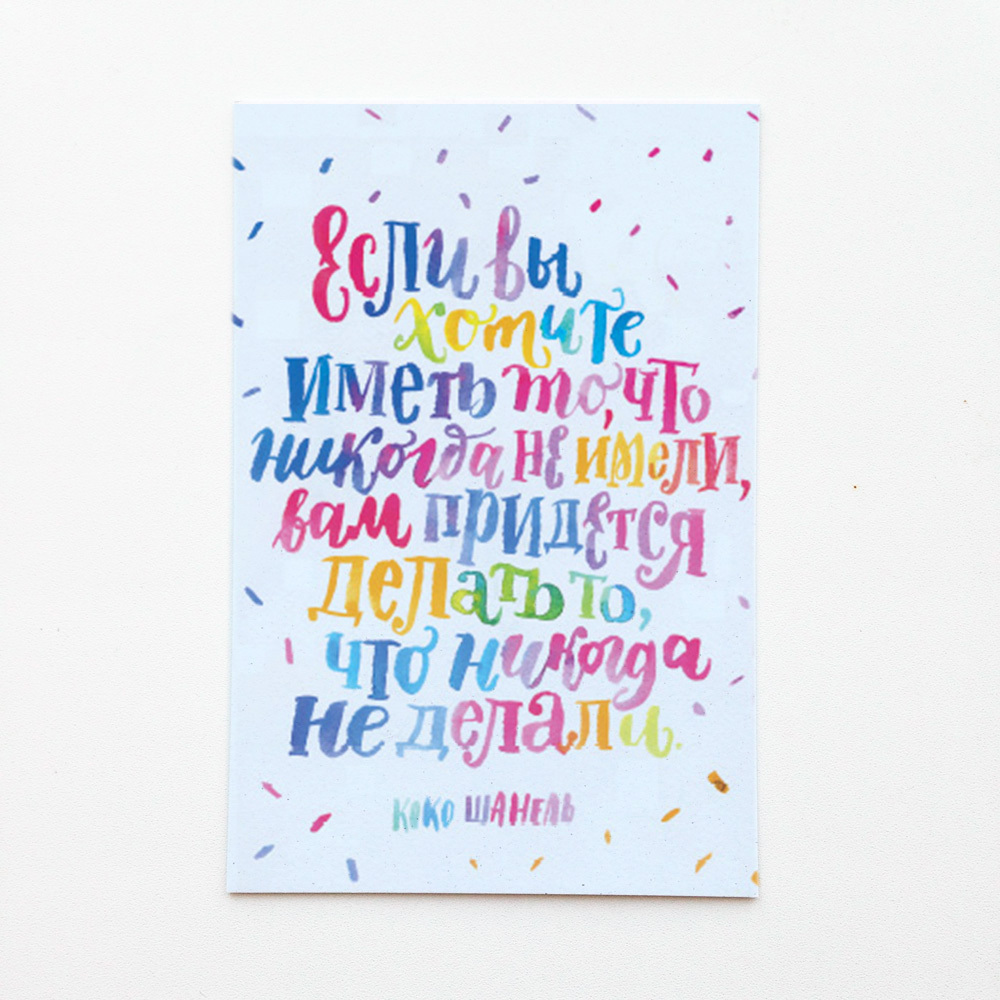 Если вы
хотите
иметь то, что
никогда не имели,
вам придется
делать то,
что никогда
не делали.
КОКО ШАНЕЛЬ